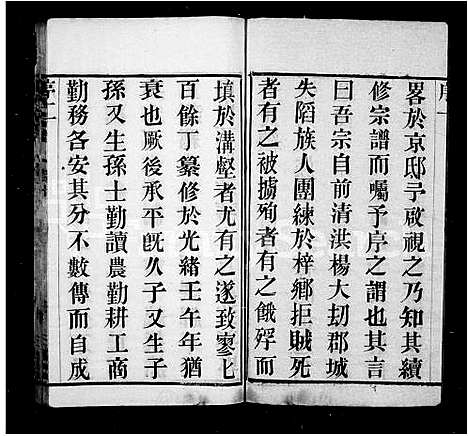 畧於京邸予啟視之乃知其續
修宗譜而囑予序之謂也其言
曰吾宗自前清洪楊大刼郡城
失陷族人團練於梓鄉拒賊死
者有之被擄殉者有之餓殍而
填於溝壑者尤有之遂致寥匕
百餘丁纂修於光緒壬午年猶
衰也厥後承平旣久子又生子
孫又生孫士勤讀農勤耕工商
勤務各安其分不數傳而自成
序二